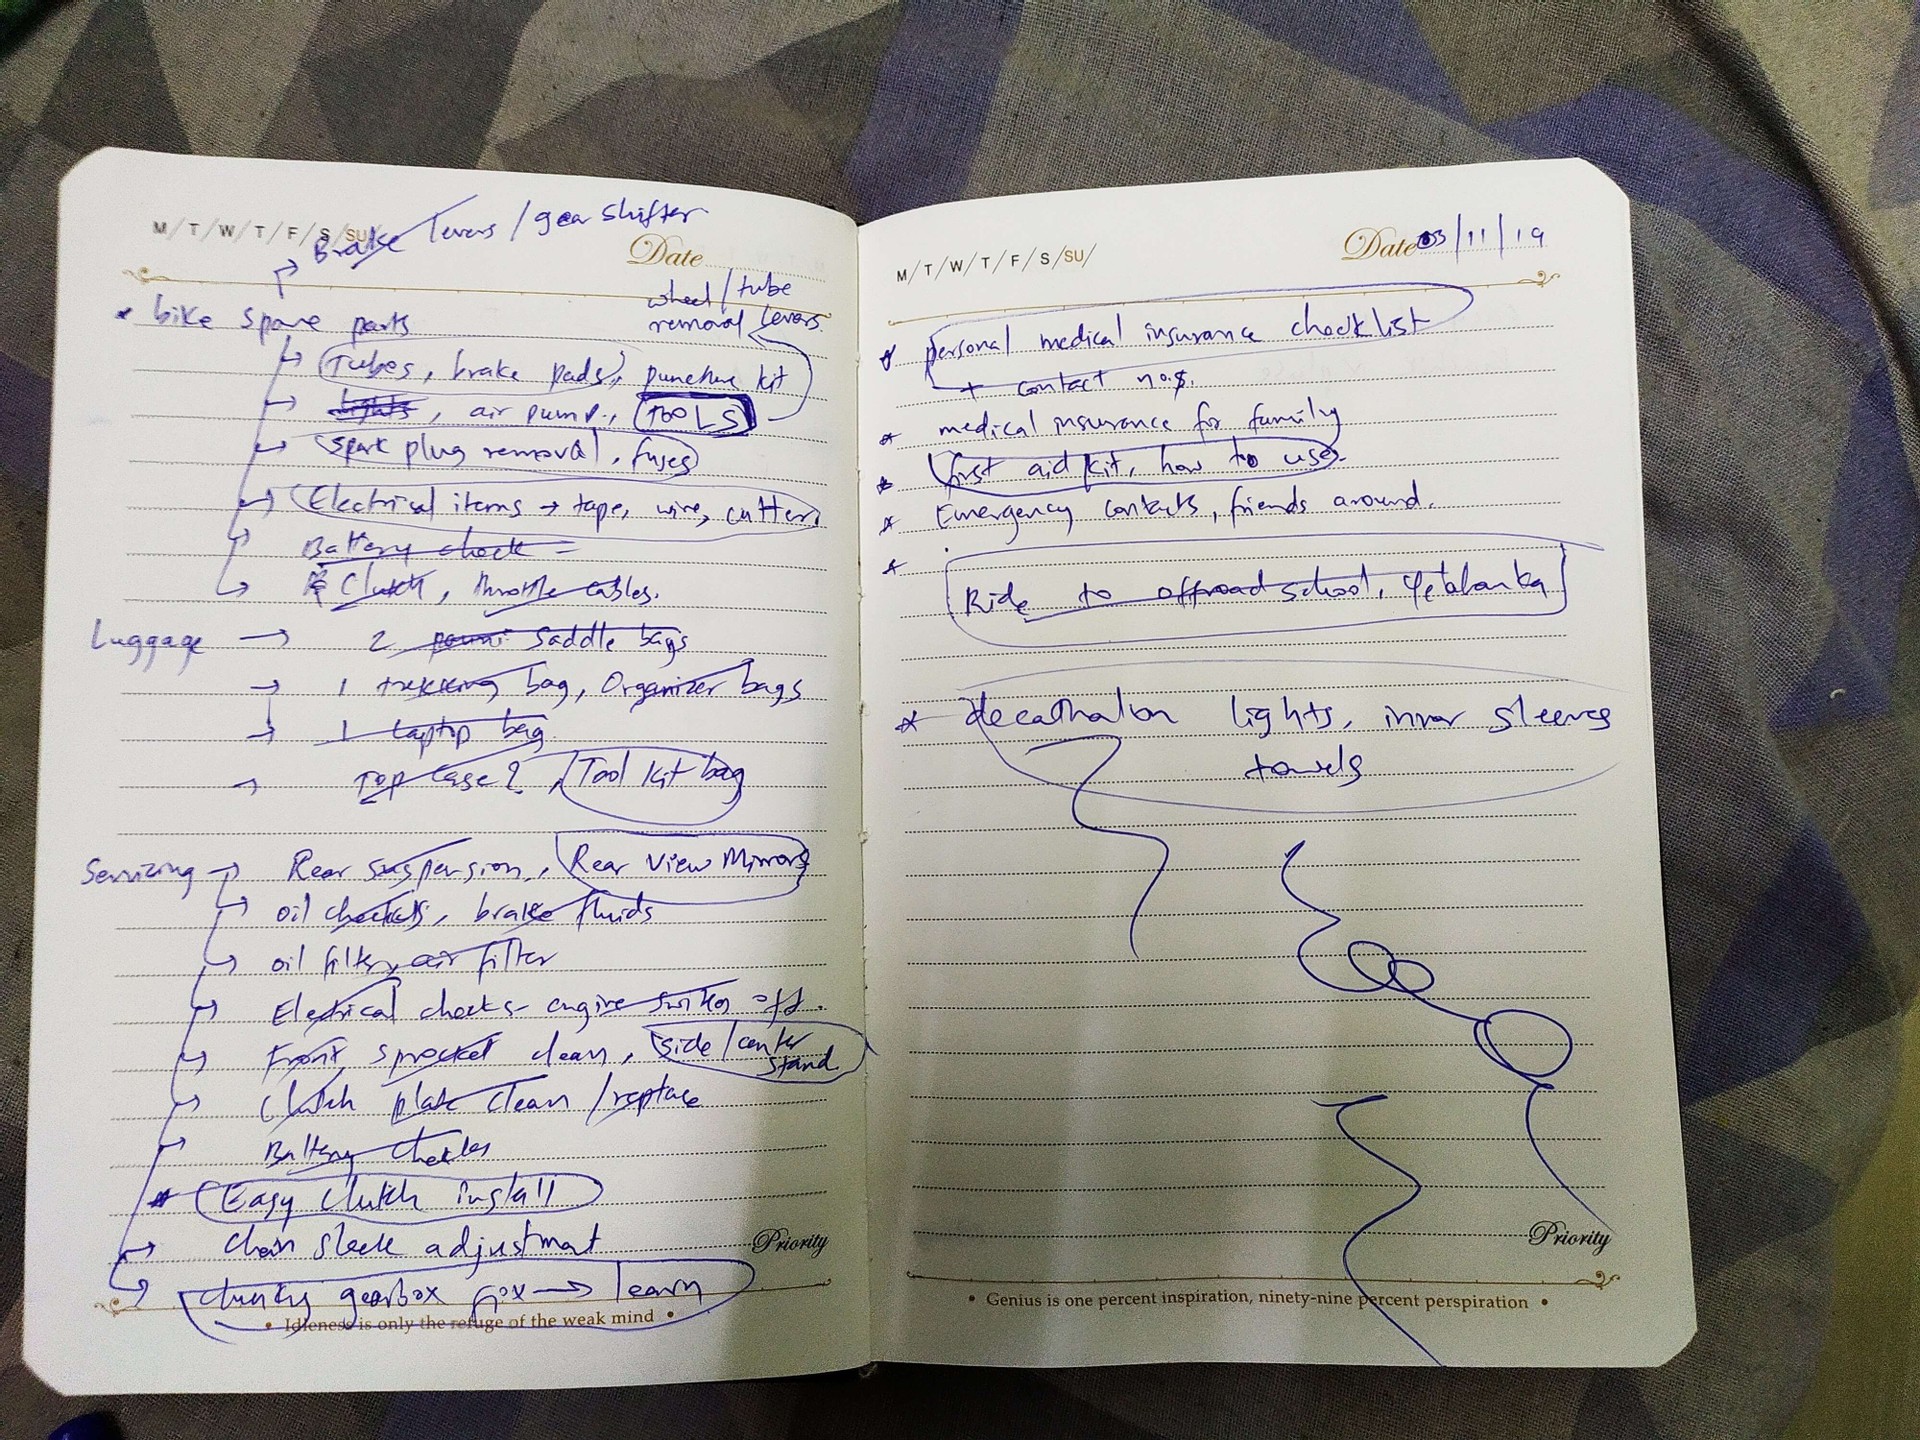 M/T/W/T/F/S/SU/
Brake levers / gear shifter
Date
wheel / tube
removal levers
* bike spare parts
Tubes, brake pads, puncture kit
lights, air pump, TOOLS
spark plug removal, fuses
Electrical items → tape, wire, cutter
Battery check
Clutch, throttle cables.
Luggage → 2 saddle bags
→ 1 trekking bag, Organizer bags
→ 1 laptop bag
→ Top case?, Tool kit bag
Servicing → Rear suspension, Rear View Mirrors
oil checks, brake fluids
oil filter, air filter
Electrical checks - engine switch off.
Front sprocket clean, side / center
stand
clutch plate clean / replace
Battery checks
* Easy clutch install
chain slack adjustment
Priority
clunky gearbox fix → learn
• Idleness is only the refuge of the weak mind •
M/T/W/T/F/S/SU/
Date 03/11/19
* personal medical insurance checklist
+ contact no.s.
* medical insurance for family
* first aid kit, how to use.
* Emergency contacts, friends around.
*
Ride to offroad school, Yelahanka
* decathalon lights, inner sleeves
towels
Priority
• Genius is one percent inspiration, ninety-nine percent perspiration •